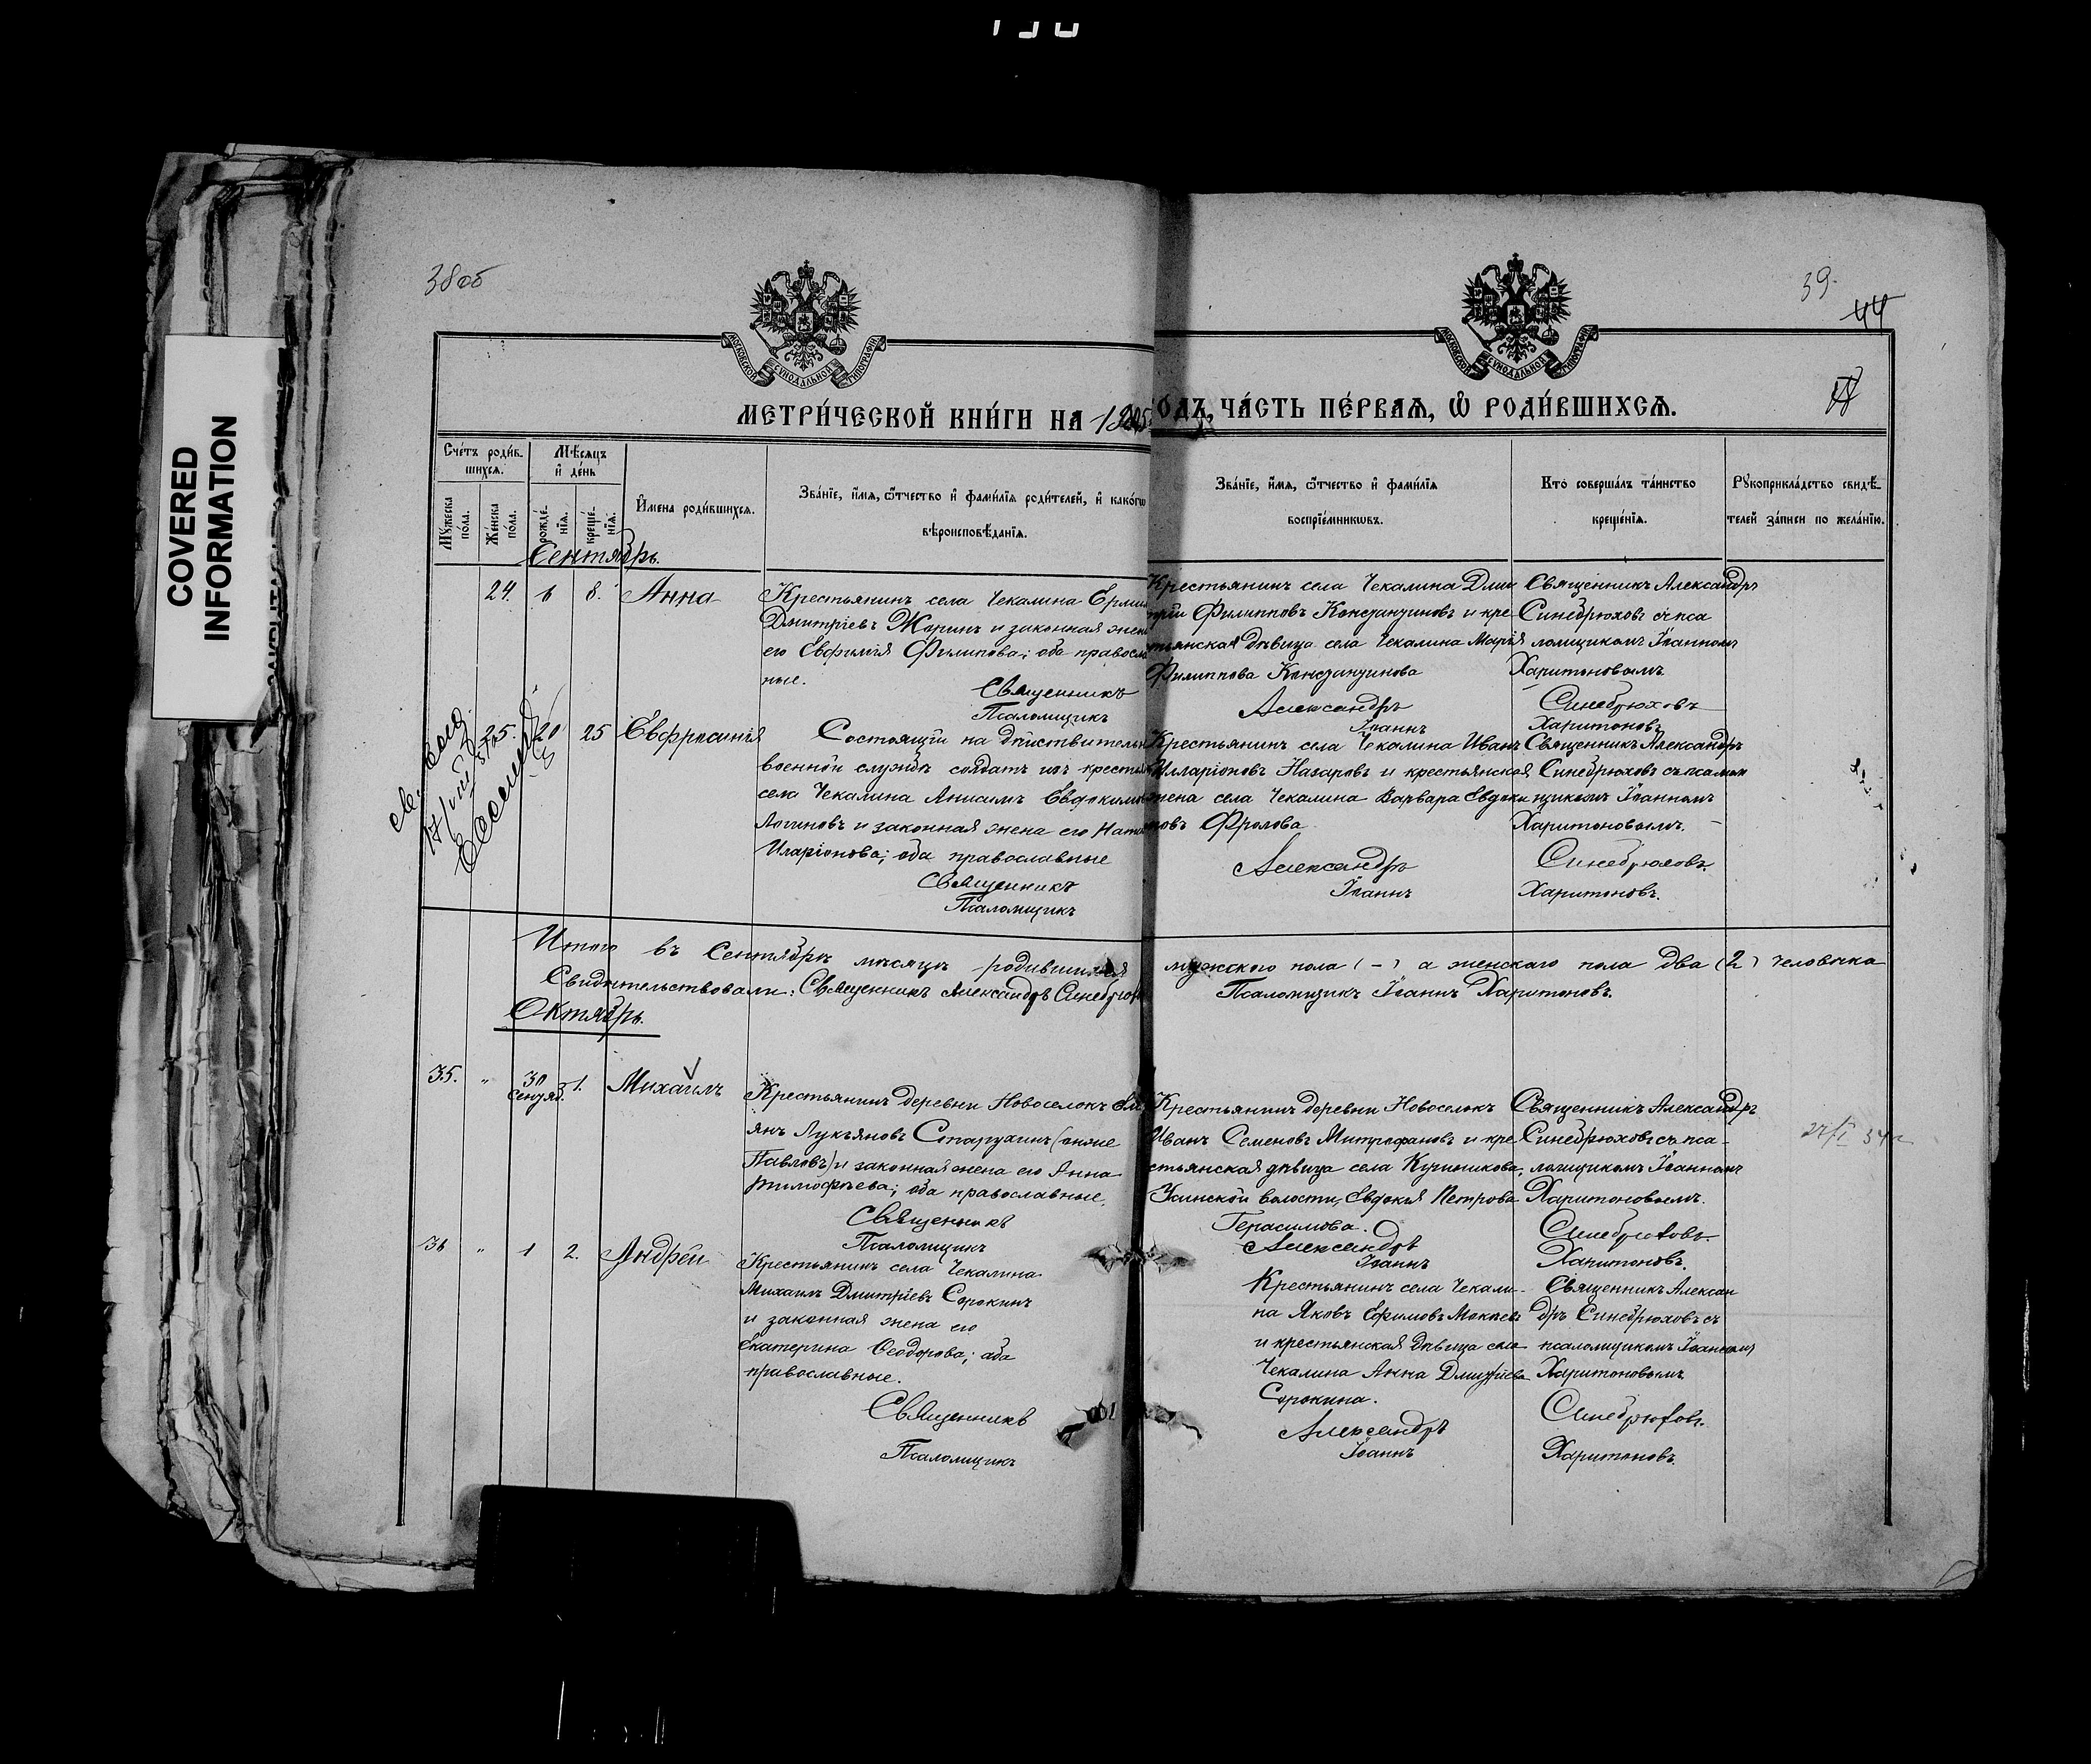 COVERED
INFORMATION
38об
39.
44
МОСКОВСКОЙ СѴНОДАЛЬНОЙ ТИПОГРАФІИ
МОСКОВСКОЙ СѴНОДАЛЬНОЙ ТИПОГРАФІИ
МЕТРИ́ЧЕСКОЙ КНИ́ГИ НА 1905 ГОДЪ, ЧА́СТЬ ПЕ́РВАЯ, Ѽ РОДИ́ВШИХСЯ.
Сче́тъ роди́в-
шихся.
Мѣ́сяцъ
и҆ де́нь
Мꙋ́жеска
по́ла.
Же́нска
по́ла.
рожде́-
нїя.
креще́-
нїя.
И҆мена роди́вшихся.
Зва́нїе, и҆́мя, ѻ҆́тчество и҆ фами́лїя роди́телей, и҆ како́гѡ
вѣроисповѣ́данїя.
Зва́нїе, и҆́мя, ѻ҆́тчество и҆ фами́лїя
воспрїе́мникѡвъ.
Кто̀ соверша́лъ та́инство
креще́нїя.
Рꙋкоприкла́дство свидѣ́-
телей за́писи по жела́нїю.
Сентябрь.
24. 6 8. Анна
Крестьянинъ села Чекалина
Дмитріевъ Жаринъ и законная жена
его Евфимія Филипова; оба правосла
ные.
Священникъ
Псаломщикъ
Крестьянинъ села Чекалина Дми
трій Филипповъ Константиновъ и кре-
стьянская дѣвица села Чекалина Марія
Филиппова Константинова
Александръ
Іоаннъ
Священникъ Александръ
Синебрюховъ съ пса
ломщикомъ Іоанномъ
Харитоновымъ.
Синебрюховъ
Харитоновъ.
25. 20 25 Евфросинія
Состоящій на дѣйствительн
военной службѣ солдатъ изъ крестья
села Чекалина Анисимъ Евдокимов
Логиновъ и законная жена его Ната
Иларіонова; оба православные
Священникъ
Псаломщикъ
Крестьянинъ села Чекалина Иванъ
Илларіоновъ Назаровъ и крестьянская
жена села Чекалина Варвара Евдоки
мовъ Фролова
Александръ
Іоаннъ
Священникъ Александръ
Синебрюховъ съ псалом
щикомъ Іоанномъ
Харитоновымъ.
Синебрюховъ.
Харитоновъ.
Итого въ Сентябрѣ мѣсяцѣ родившихся мужского пола (-) а женскаго пола два (2) человѣка
Свидѣтельствовали: Священникъ Александръ Синебрюх Псаломщикъ Іоаннъ Харитоновъ.
Октябрь.
35. " 30 1. Михаилъ
Сентяб.
Крестьянинъ деревни Новоселокъ
янъ Лукьяновъ Старухинъ (онже
Павловъ) и законная жена его Анна
Тимофѣева; оба православные.
Священникъ
Псаломщикъ
Крестьянинъ деревни Новоселокъ
Иванъ Семеновъ Митрофановъ и кре-
стьянская дѣвица села
волости, Евдокія Петрова
Герасимова.
Александръ
Іоаннъ
Священникъ Александръ
Синебрюховъ съ пса-
ломщикомъ Іоанномъ
Харитоновымъ.
Синебрюховъ.
Харитоновъ.
36 " 1 2. Андрей
Крестьянинъ села Чекалина
Михаилъ Дмитріевъ Сорокинъ
и законная жена его
Екатерина Ѳеодорова; оба
православные.
Священникъ
Псаломщикъ
Крестьянинъ села Чекали-
на Яковъ Ефимовъ
и крестьянская дѣвица села
Чекалина Анна Дмитріева
Сорокина.
Александръ
Іоаннъ
Священникъ Алексан
дръ Синебрюховъ съ
псаломщикомъ Іоанномъ
Харитоновымъ
Синебрюховъ.
Харитоновъ.